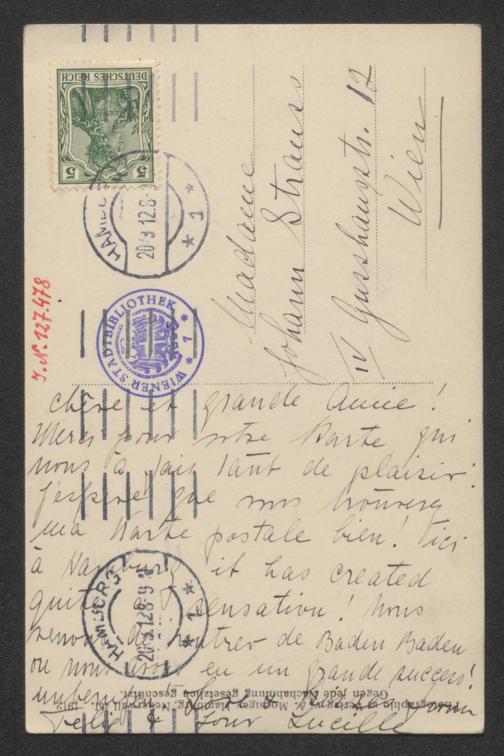 DEUTSCHES REICH
5 5
HAMBURG
20.9.12.8-9
* 1 *
Madame
Johann Strauss
IV Gusshausstr. 12
Wien
J. N. 127.478
WIENER STADTBIBLIOTHEK
Chère et grande Amie!
Merci pour votre Karte qui
nous à fait tant de plaisir!
J'espère que vous trouverez
ma Karte postale bien! Ici
à Hamburg it has created
quite a sensation! Nous
venons de rentrer de Baden Baden
ou nous avons eu un grande success!
Felix & Your Lucille
HAMBURG
20.9.12.8-9
* 1 *
Gegen jede Nachahmung gesetzlich geschützt.